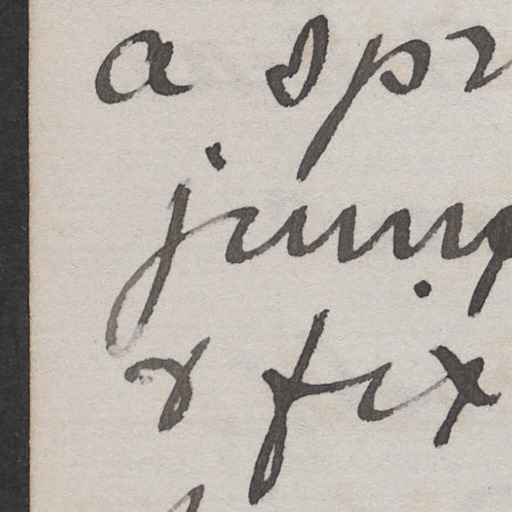 a spr
jump
& fix